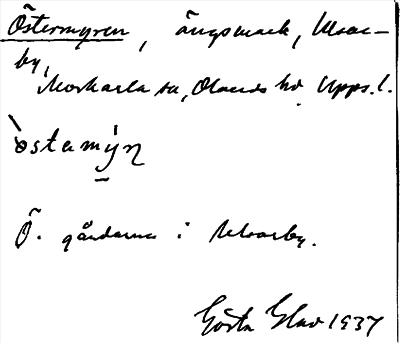 Östermyren, ängsmark, Kloar-
by,
Morkarla sn, Olands hd, Upps. l.
òstamýn
Ö. gårdarna i Kloarby.
Gösta Glad 1937